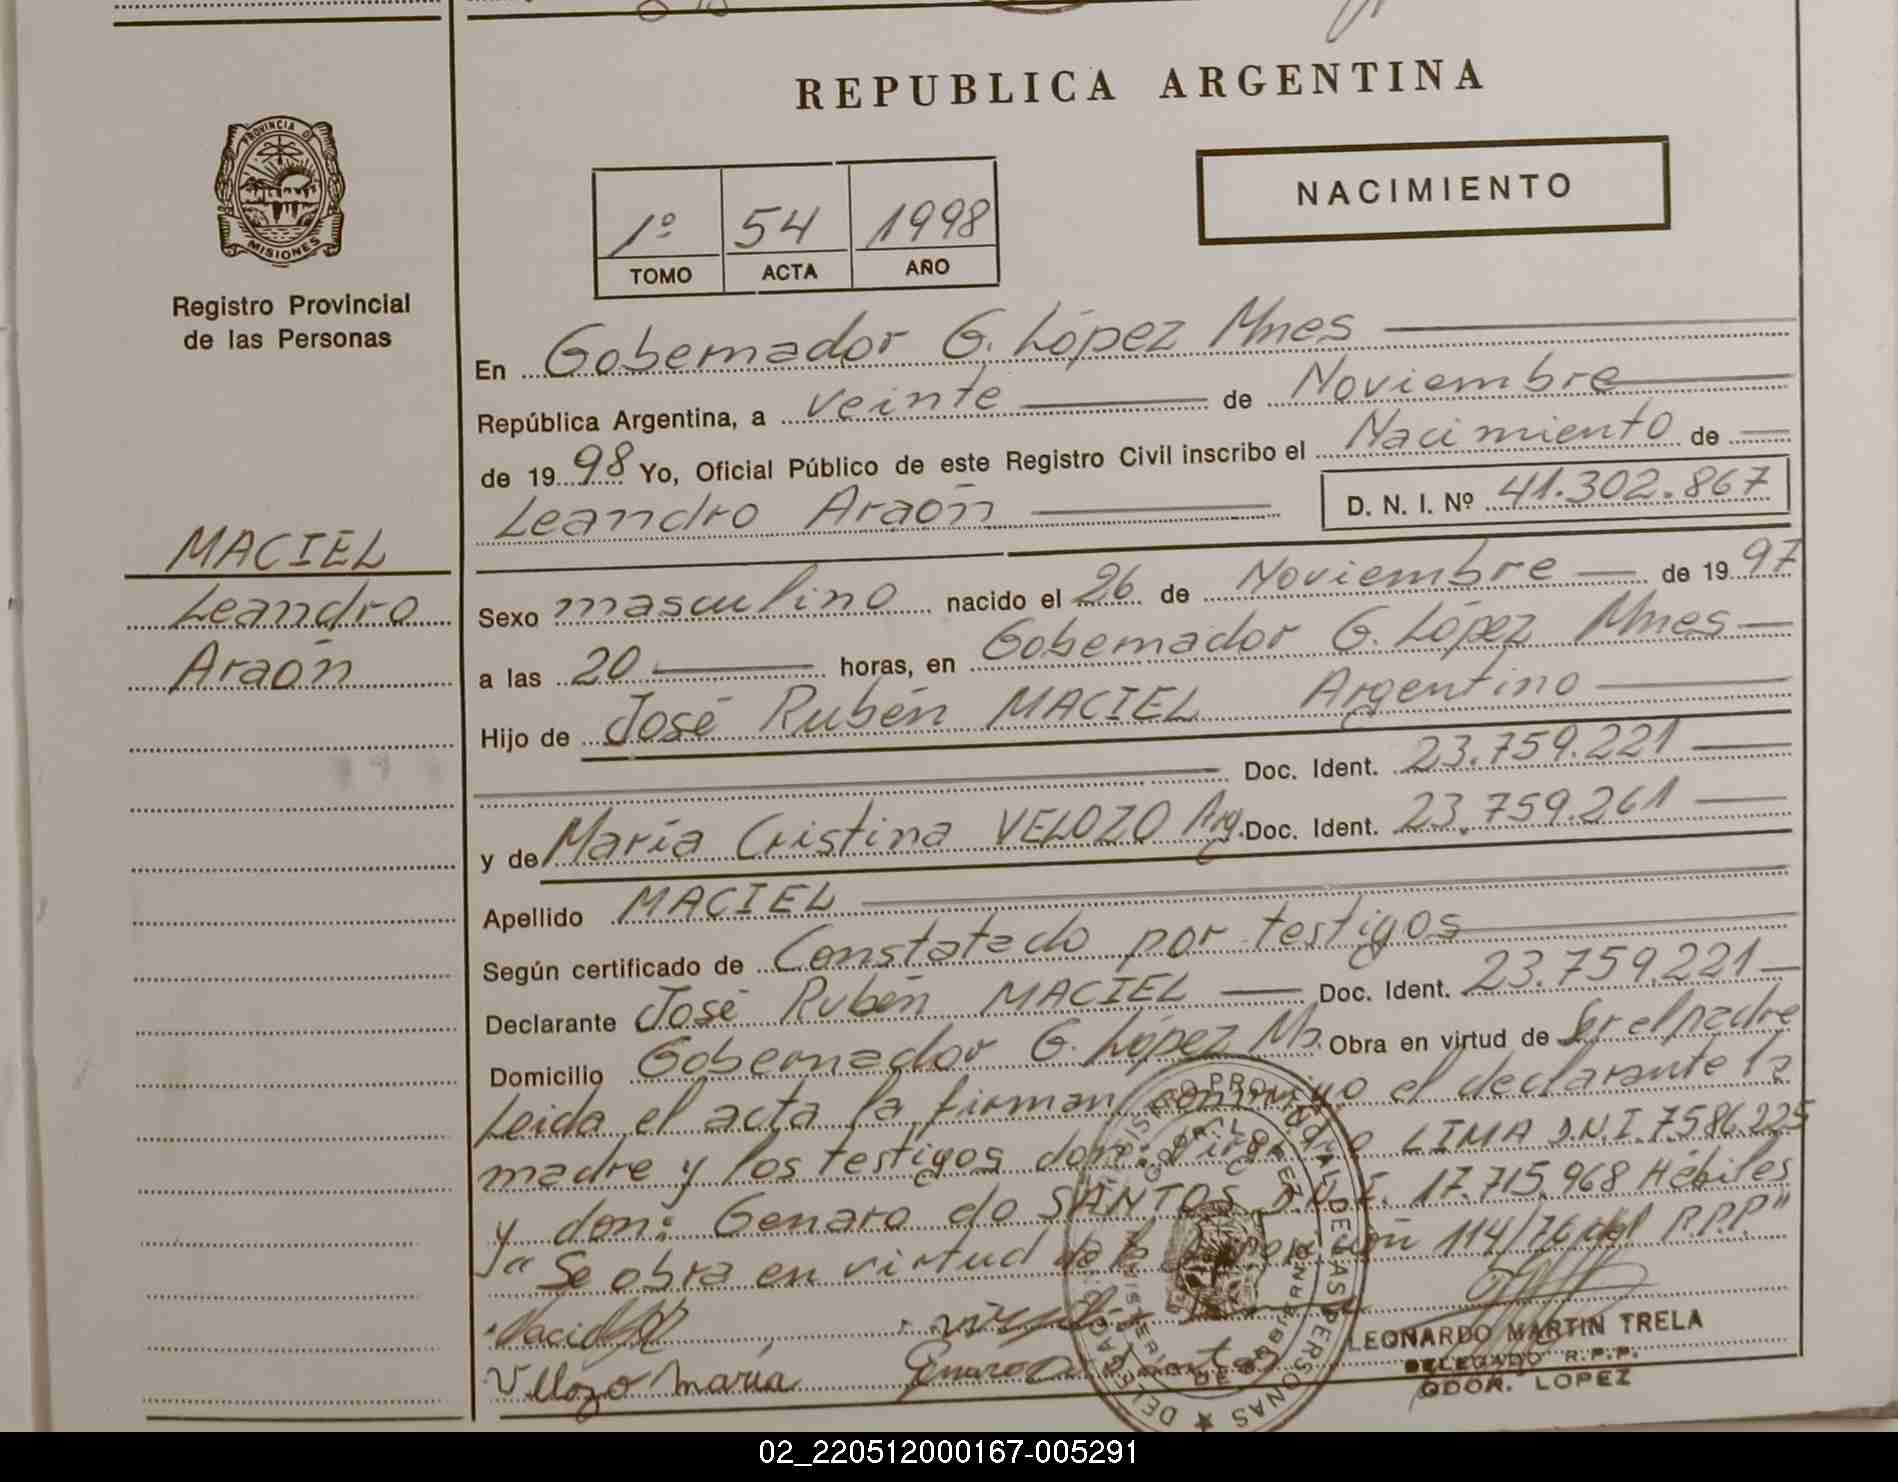 REPUBLICA ARGENTINA
PROVINCIA DE MISIONES
Registro Provincial
de las Personas
NACIMIENTO
1º 54 1998
TOMO ACTA AÑO
En Gobernador G. López Mnes
República Argentina, a veinte de Noviembre
de 1998 Yo, Oficial Público de este Registro Civil inscribo el Nacimiento de
Leandro Araón D. N. I. Nº 41.302.867
MACIEL
Leandro
Araón
Sexo masculino nacido el 26 de Noviembre de 1997
a las 20 horas, en Gobernador G. López Mnes
Hijo de José Rubén MACIEL Argentino
Doc. Ident. 23.759.221
y de María Cristina VELOZO Arg. Doc. Ident. 23.759.261
Apellido MACIEL
Según certificado de Constatado por testigos
Declarante José Rubén MACIEL Doc. Ident. 23.759.221
Domicilio Gobernador G. López Ms. Obra en virtud de Ser el padre
Leida el acta la firman conmigo el declarante la
madre y los testigos don: LIMA D.N.I. 7.586.225
y don: Genaro do SANTOS D.N.I. 17.715.968 Hábiles
"Se obra en virtud de la 114/76 del R.P.P."
Velozo María
LEONARDO MARTIN TRELA
DELEGADO R.P.P.
GDOR. LOPEZ
02_220512000167-005291